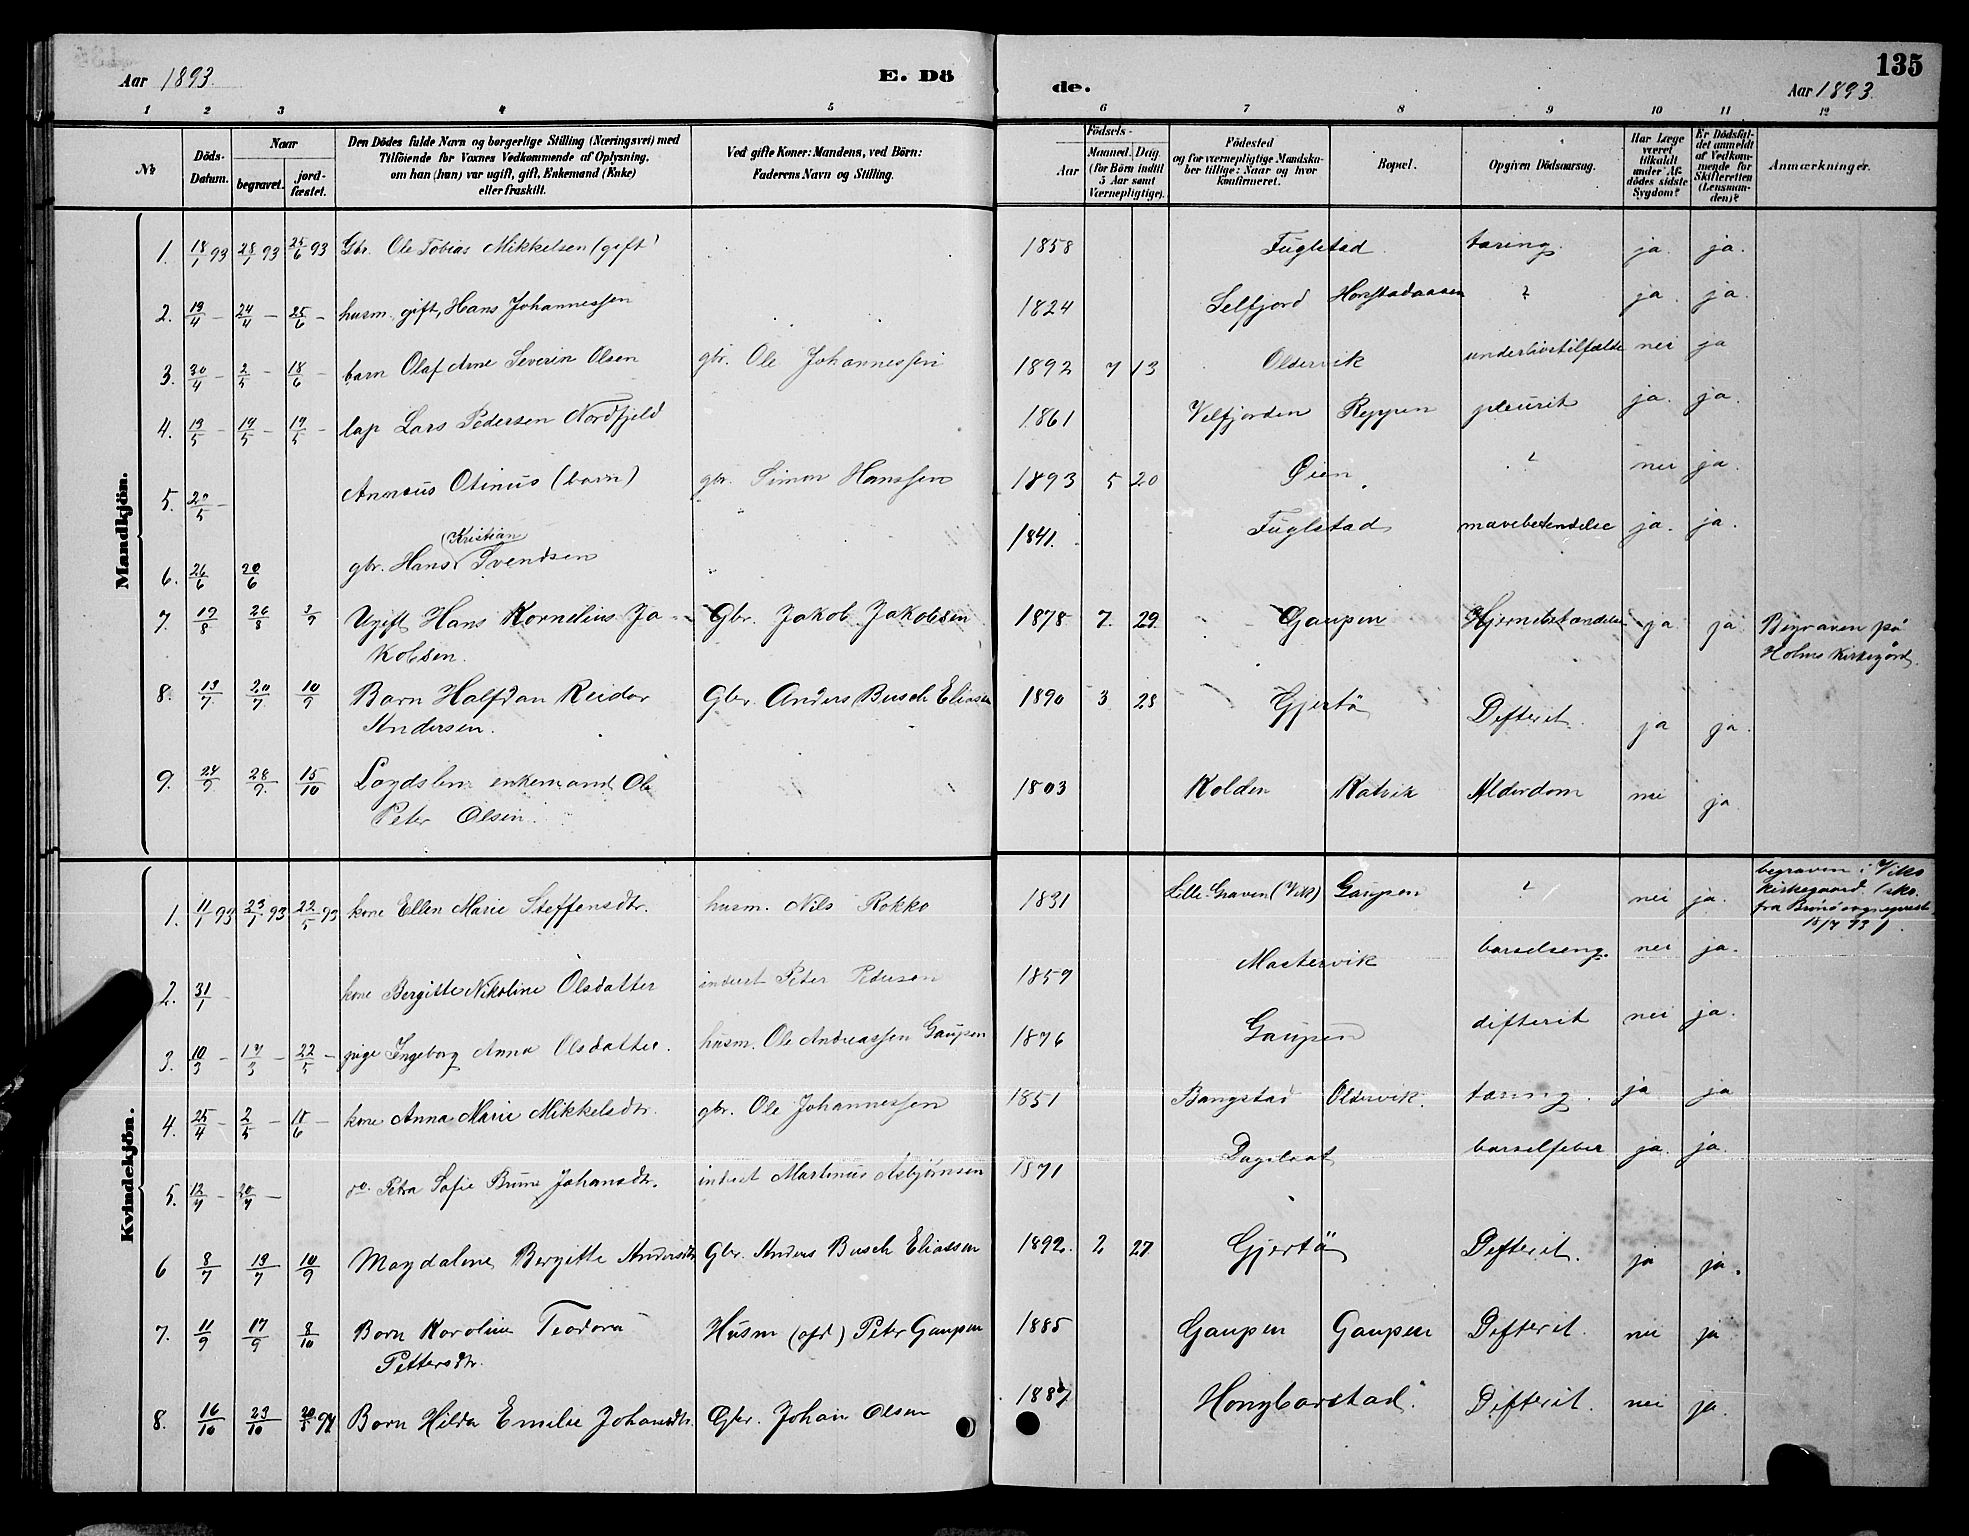 135
Aar 1893. E. Dö de. Aar 1893.
1 2 3 4 5 6 7 8 9 10 11 12
No
Döds-Datum.
Naar
begravet.
jord-fæstet.
Den Dödes fulde Navn og borgerlige Stilling (Næringsvei) med
Tilföiende for Voxnes Vedkommende af Oplysning,
om han (hun) var ugift, gift, Enkemand (Enke)
eller fraskilt.
Ved gifte Koner: Mandens, ved Börn:
Faderens Navn og Stilling.
Födsels-
Aar
Maaned. Dag
(for Börn indtil
5 Aar samt
Værnepligtige).
Födested
og for værnepligtige Mandska-
ber tillige: Naar og hvor
konfirmeret.
Bopæl.
Opgiven Dödsaarsag.
Har Læge
været
tilkaldt
under Af-
dödes sidste
Sygdom?
Er Dödsfal-
det anmeldt
af Vedkom-
mende for
Skifteretten
(Lensman-
den)?
Anmærkninger.
Mandkjön.
1. 18/1 93 28/1 93 25/6 93 Gbr. Ole Tobias Mikkelsen (gift) 1858 Fuglstad tæring ja. ja.
2. 19/4 - 24/4 - 25/6 - husm. gift, Hans Johannessen 1824 Selfjord Horstadaasen ? ja. ja.
3. 30/4 - 2/5 - 18/6 - barn Olaf Arne Severin Olsen gbr. Ole Johannessen 1892 7 13 Oldervik underlivstilfælde nei ja
4. 13/5 - 19/5 - 19/5 - lap Lars Pedersen Nordfjeld 1861 Velfjorden Reppen pleurit ja. ja.
5. 20/5 - Annæus Otinus (barn) gbr. Simon Hanssen 1893 5 20 Øien ? nei ja.
6. 26/6 20/6 gbr. Hans (Kristian) Svendsen 1841. Fuglstad mavebetendelse ja. ja.
7. 19/8 26/8 3/9 Ugift Hans Kornelius Ja- Gbr. Jakob Jakobsen 1878 7. 29. Gaupen Hjernebetændelse ja ja Begraven på
kobsen. Holms kirkegård.
8. 13/7 20/7 10/9 Barn Halfdan Reidar Gbr. Anders Busch Eliassen 1890 3 28 Gjertø Difterit. ja ja.
Andersen.
9. 24/9 28/9 15/10 Lægdslem enkemand Ole 1803 Kolden Ratvik Alderdom nei ja
Peter Olsen.
Kvindekjön.
1. 11/1 93 23/1 93 22/5 93 kone Ellen Marie Steffensdtr. husm. Nils Rokko 1831 Lille-Graven (Vik) Gaupen ? nei ja. begraven i Viks
kirkegaard
18/7 93).
2. 31/1 - kone Bergitte Nikoline Olsdatter inderst Peter Pedersen 1859 Mastervik barselseng. nei ja.
3. 10/3 - 17/3 - 22/5 - pige Ingeborg Anna Olsdatter. husm. Ole Andreassen Gaupen 1876 Gaupen difterit nei ja.
4. 25/4 - 2/5 - 18/6 - kone Anna Marie Mikkelsdtr. gbr. Ole Johannessen 1851 Bangstad Oldervik. tæring. ja ja
5. 12/7 - 20/7 - do. Petra Sofie Brune Johansdtr. inderst Martinus Asbjørnsen 1871 Dagslaat barselfeber ja. ja.
6 8/7 13/7 10/9 Magdalene Bergitte Andersdtr Gbr. Anders Busch Eliassen 1892. 2 27 Gjertø Difterit. ja ja.
7. 11/9 17/9 8/10 Barn Karoline Teodora Husm (afd) Peter Gaupen 1885 Gaupen Gaupen Difterit. nei ja
Pettersdtr.
8. 16/10 23/10 20/5 94 Barn Hilda Emilie Johansdtr. Gbr. Johan Olsen 1887 Hongbarstad. Difterit. nei ja.